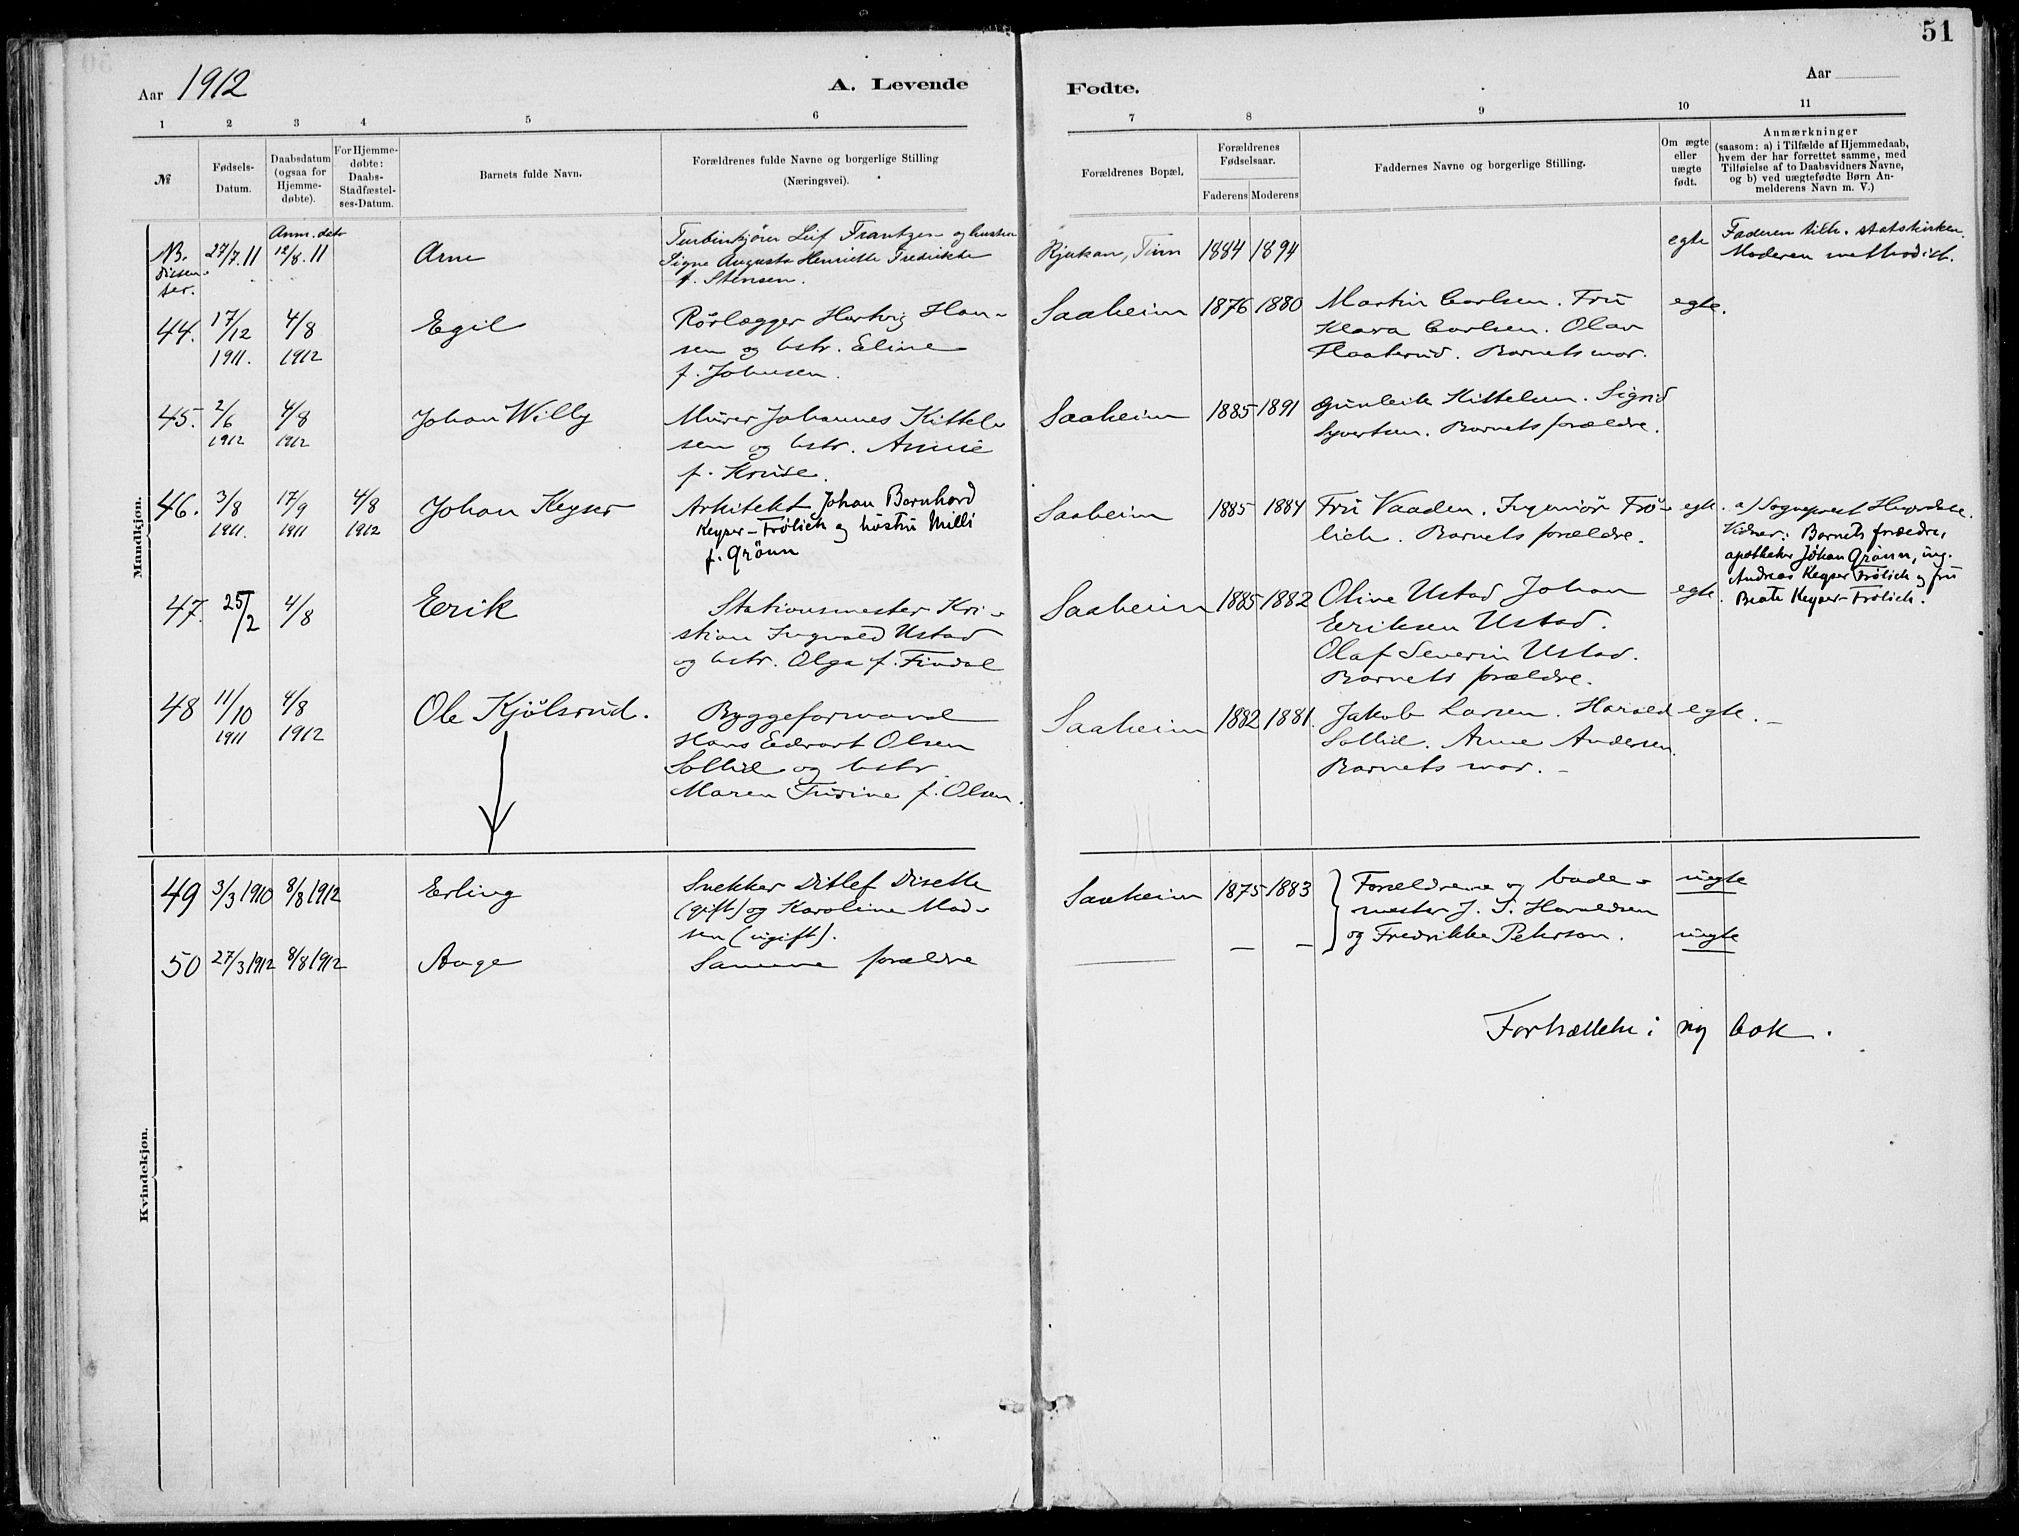 51
Aar 1912
A. Levende
Fødte.
Aar
1 2 3 4 5 6 7 8 9 10 11
№
Fødsels-
Datum.
Daabsdatum
(ogsaa for
Hjemme-
døbte).
For Hjemme-
døbte:
Daabs-
Stadfæstel-
ses-Datum.
Barnets fulde Navn.
Forældrenes fulde Navne og borgerlige Stilling
(Næringsvei).
Forældrenes Bopæl.
Forældrenes
Fødselsaar.
Faderens Moderens
Faddernes Navne og borgerlige Stilling.
Om ægte
eller
uægte
født.
Anmærkninger
(saasom: a) i Tilfælde af Hjemmedaab,
hvem der har forrettet samme, med
Tilføielse af to Daabsvidners Navne,
og b) ved uægtefødte Børn An-
melderens Navn m. V.)
Mandkjøn.
NB. 27/7.11 Anm. dato 12/8.11 Arne
Dissen-
ter.
Turbinkjører Leif Frantzen og hustru
Signe Augusta Henriette Fredrikke
f. Stensen.
Rjukan, Tinn 1884 1894 egte
Faderen tilh. statskirken.
Moderen methodist.
44. 17/12 1911. 4/8 1912 Egil
Rörlægger Hartvig Han-
sen og hstr. Eline
f. Johnsen.
Saaheim 1876 1880
Martin Carlsen. Fru
Klara Carlsen. Olav
Flaaterud. Barnets mor.
egte.
45. 2/6 1912 4/8 1912 Johan Willy
Murer Johannes Kittel-
sen og hstr. Annie
f. Kruse.
Saaheim 1885 1891
Gunleik Kittelsen. Sigrid
Syvertsen. Barnets forældre.
46. 3/8 1911. 17/9 1911 4/8 1912 Johan Keyser
Arkitekt Johan Barnhard
Keyser-Frölich og hustru Milli
f. Grönn
Saaheim 1885 1884
Fru Vaaden. Ingeniör Frö-
lich. Barnets forældre.
egte.
a/ Sogneprest
Vidner: Barnets forældre,
apotheker Johan Grönn, ing.
Andreas Keyser Frölich og fru
Beate Keyser-Frölich.
47. 25/2 4/8 Eerik
Stationsmester Kri-
stian Ingvald Ustad
og hstr. Olga f. Findal
Saaheim 1885 1882
Oline Ustad Johan
Eeriksen Ustad.
Olaf Severin Ustad.
Barnets forældre.
egte.
48 11/10 1911 4/8 1912 Ole Kjölsrud.
Byggeformand
Hans Edvart Olsen
Sollid og hstr.
Maren Trudine f. Olsen.
Saaheim 1882 1881.
Jakob Larsen. Harald
Sollid. Anne Andersen.
Barnets mor. –
egte. –
Kvindekjøn.
49 3/3 1910 8/8 1912 Erling
Snekker Ditlef Disette
(gift) og Karoline Mad-
sen (ugift).
Saaheim 1875 1883
Forældrene og bade-
mester J. S. Haraldsen
og Fredrikke Peterson.
uegte
uegte
50 27/3 1912 8/8 1912 Aage
Samme forældre
— – –
Fortsættelse i ny bok.